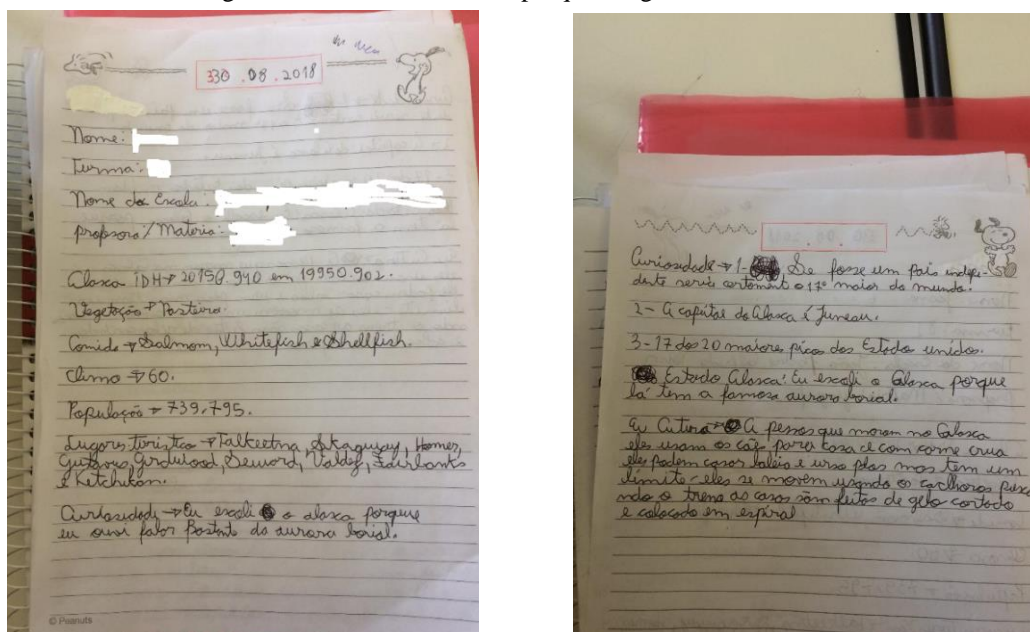 330.08.2018
Nome:
Turma:
Nome da Escola:
profssora/Materia:
Alasca IDH → 20150.940 em 19950.902.
Vegetação → Pasteira.
Comida → Salmom, Whitefish e Shellfish.
Clima → 60.
População → 739,795.
Lugares turistico → Talkeetna, Skaguay, Homer,
Girdwood, Seword, Valdez, Fairbanks
e Ketchikan.
Curiosidade → Eu escoli a alasca porque
eu ouvi falar bastante da aurora borial.
© Peanuts
Curiosidade → 1- Se fosse um país indepe-
dente seria certament o 17º maior do mundo.
2- A capital do Alasca é Juneau.
3- 17 dos 20 maiores picos dos Estados unidos.
Estado Alasca: Eu escoli o Alasca porque
lá tem a famosa aurora borial.
A Cutura → A pessoas que moram no Alasca
eles usam os cães para casa e com carne crua
eles podem casar baleia e urso plas mas têm um
limite eles se movem usando os cachoros puxa
ndo o treno as casas sãm feitas de gelo cortado
e colocado em espiral